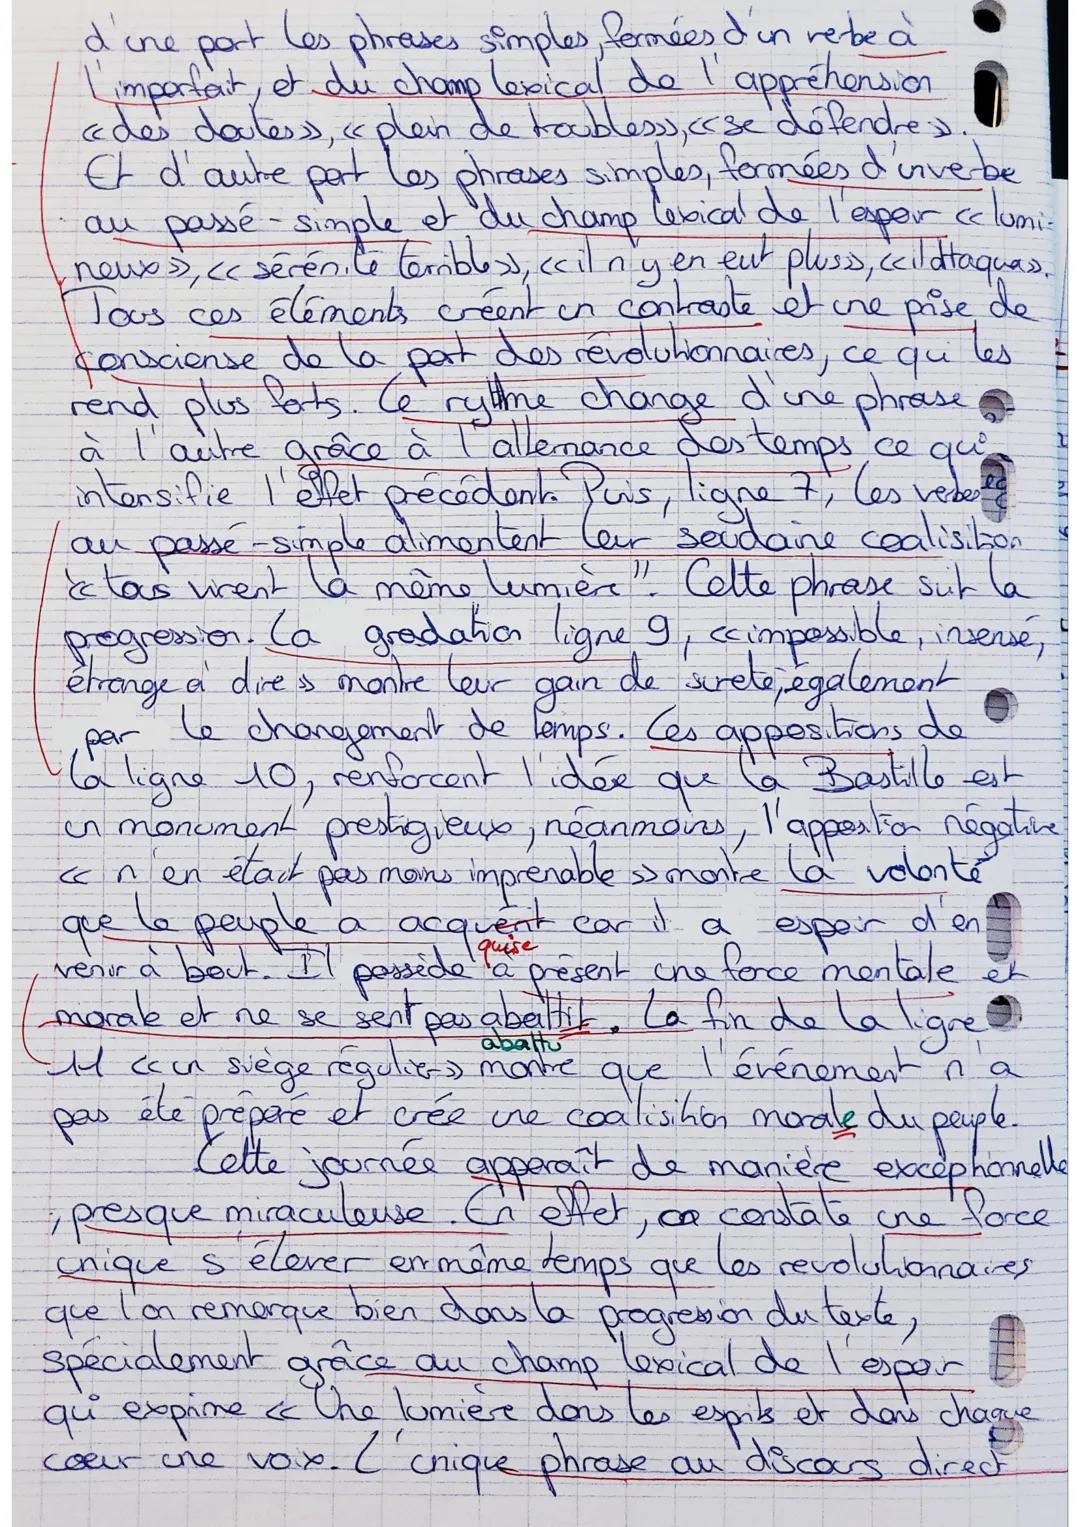 d'une part les phrases simples, formées d'un verbe à
l'imparfait, et du champ lexical de l'appréhension
«des doutes», «plein de troubles», «se défendre».
Et d'autre part les phrases simples, formées d'un verbe
au passé-simple et du champ lexical de l'espoir «lumi-
neux», «sérénité terrible», «il n'y en eut plus», «il attaqua».
Tous ces éléments créent un contraste et une prise de
consciense de la part des révolutionnaires, ce qui les
rend plus forts. Le rythme change d'une phrase
à l'autre grâce à l'alternance des temps ce qui
intensifie l'effet précédent. Puis, ligne 7, les verbes
au passé-simple alimentent leur soudaine coalisition
«tous virent la même lumière". Cette phrase suit la
progression. La gradation ligne 9, «impossible, insensé,
étrange à dire» montre leur gain de sureté, également
par le changement de temps. Les appositions de
la ligne 10, renforcent l'idée que la Bastille est
un monument prestigieux, néanmoins, l'apposition négative
«n'en était pas moins imprenable» montre la volonté
que le peuple a acquérit car il a espoir d'en
quise
venir à bout. Il possède à présent une force mentale et
morale et ne se sent pas abattit. La fin de la ligne
abattu
11 «un siège régulier» montre que l'événement n'a
pas été préparé et crée une coalisition morale du peuple.
Cette journée apparaît de manière exceptionnelle
, presque miraculeuse. En effet, on constate une force
unique s'élever en même temps que les revolutionnaires
que l'on remarque bien dans la progression du texte,
spécialement grâce au champ lexical de l'espoir
qui exprime «Une lumière dans les esprits et dans chaque
coeur une voix. L'unique phrase au discours direct